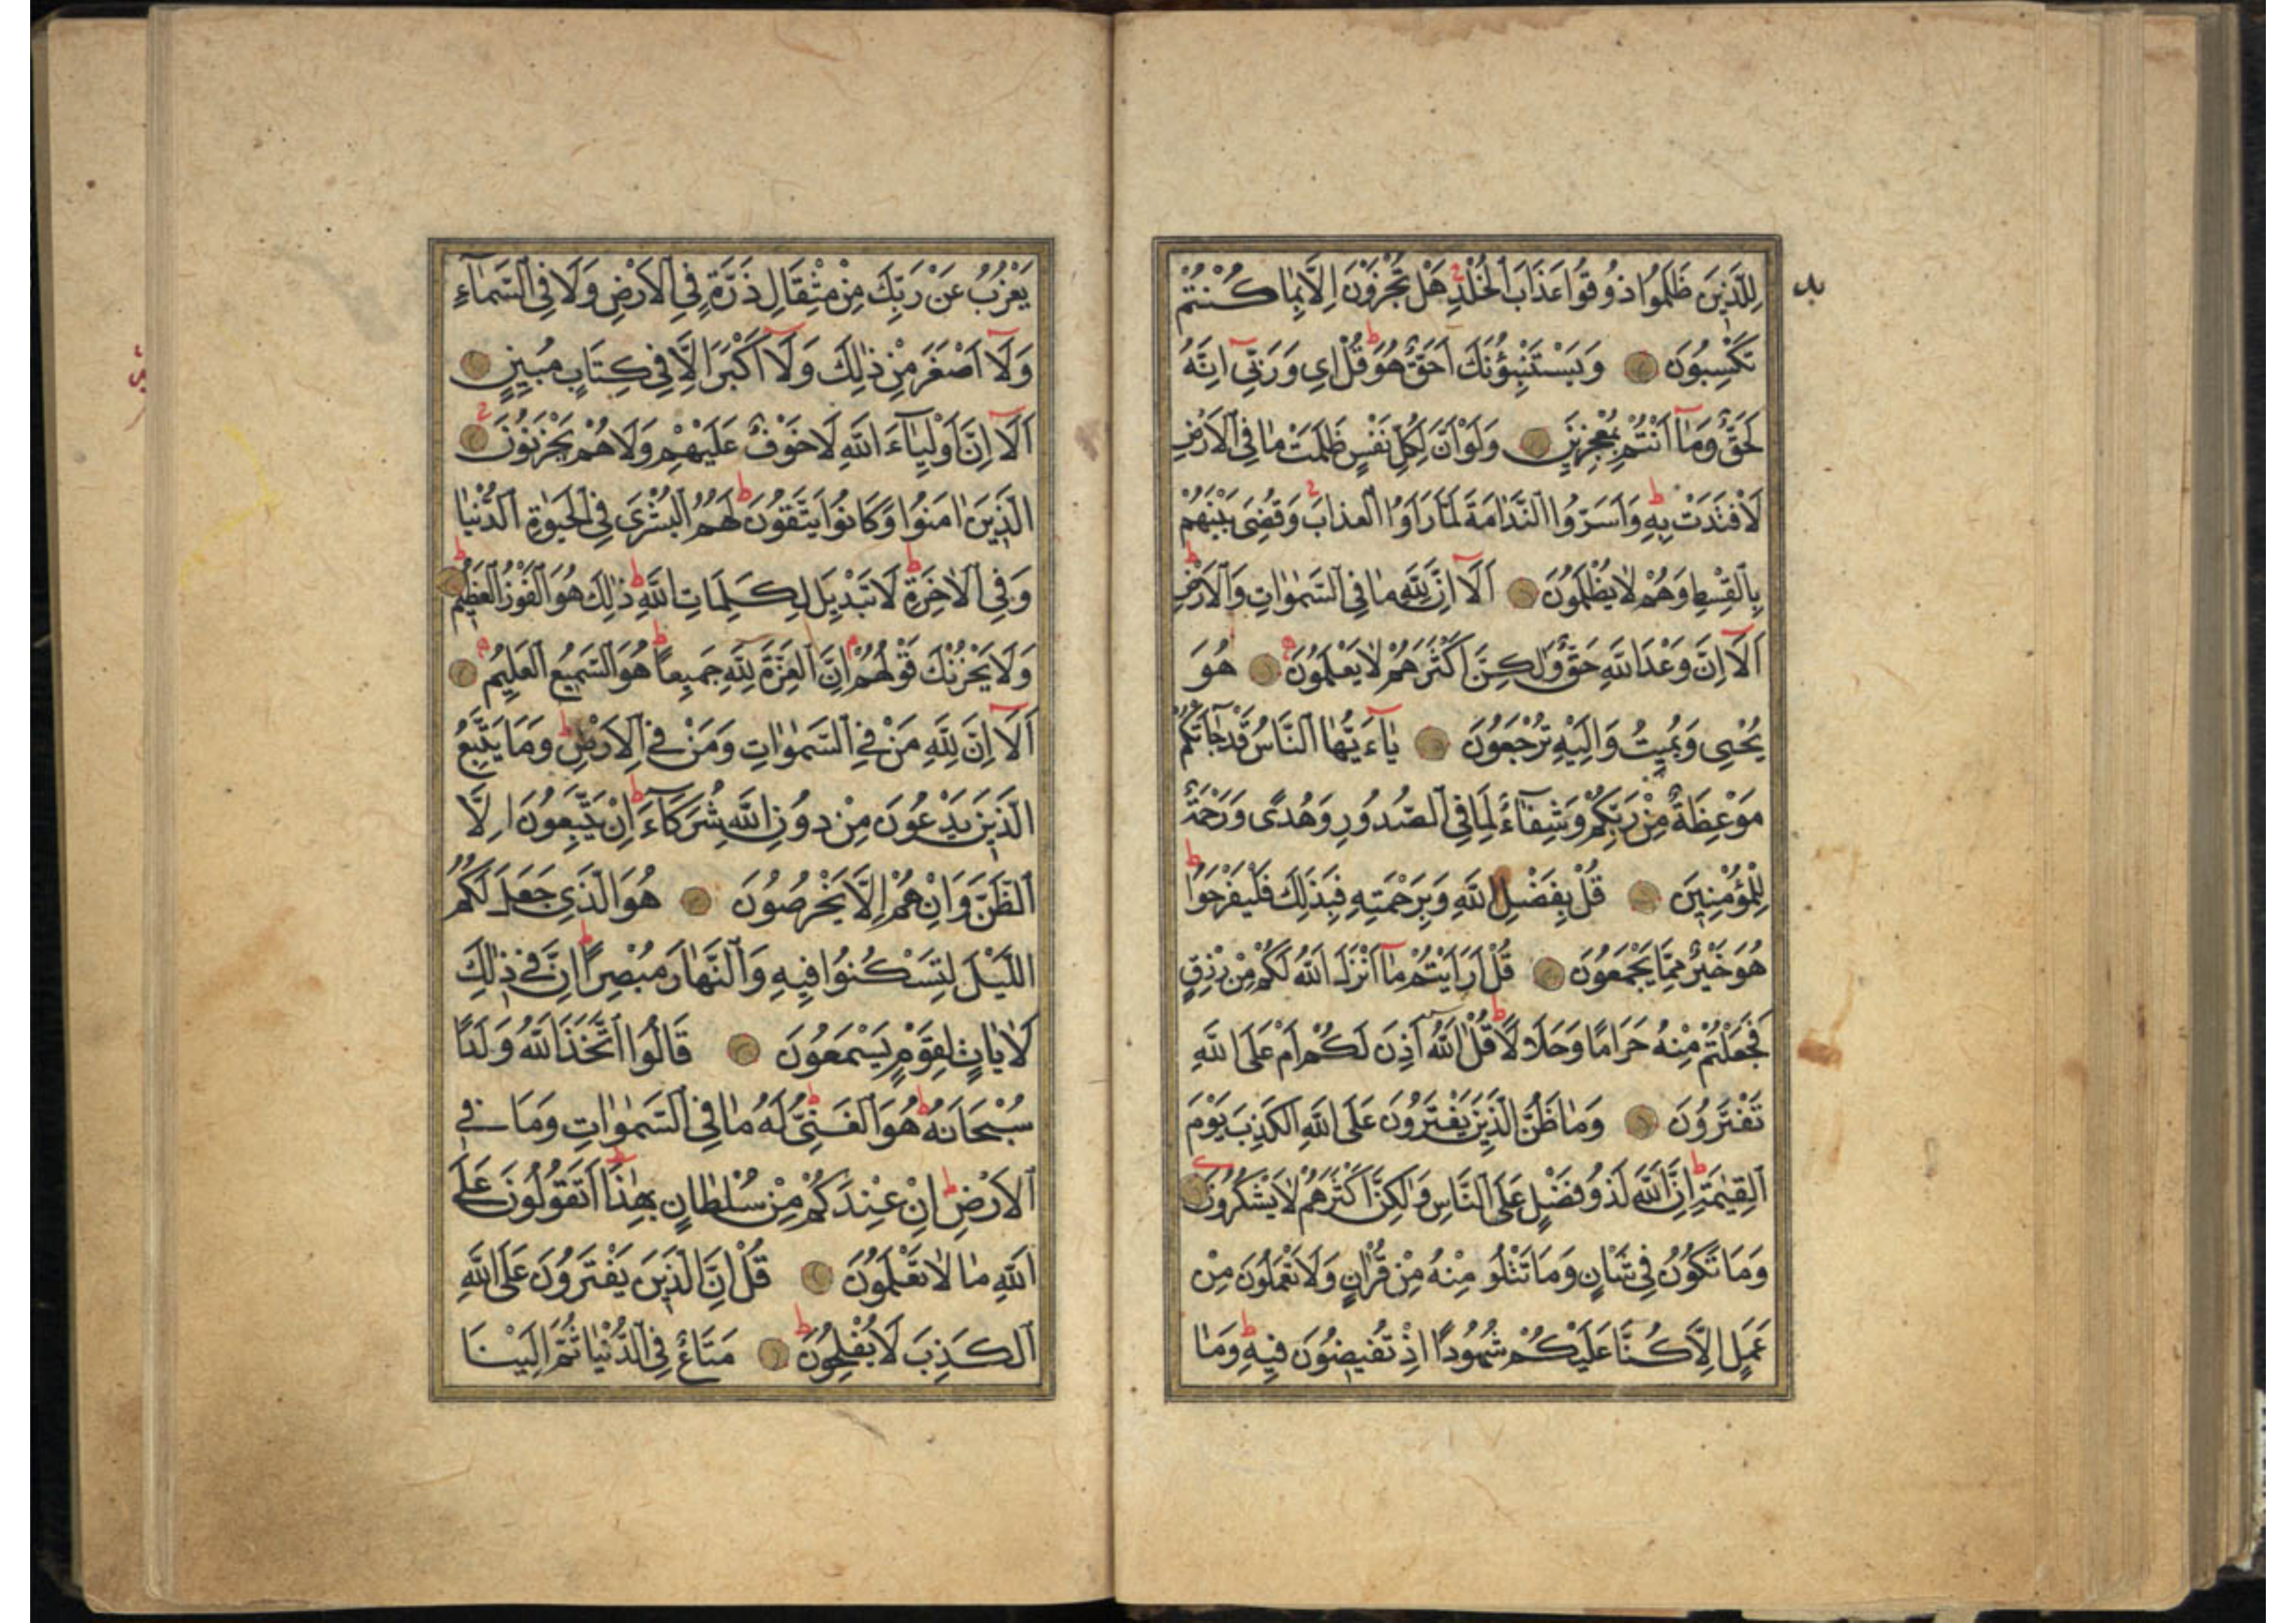 لِلَّذِينَ ظَلَمُوا ذُوقُوا عَذَابَ الْخُلْدِ هَلْ تُجْزَوْنَ اِلَّا بِمَا كُنْتُمْ
تَكْسِبُونَ وَيَسْتَنْبِؤُنَكَ اَحَقٌّ هُوَ قُلْ اِي وَرَبِّي اِنَّهُ
لَحَقٌّ وَمَا اَنْتُمْ بِمُعْجِزِينَ وَلَوْ اَنَّ لِكُلِّ نَفْسٍ ظَلَمَتْ مَا فِي الْاَرْضِ
لَافْتَدَتْ بِهِ وَاَسَرُّوا النَّدَامَةَ لَمَّا رَاَوُا الْعَذَابَ وَقُضِىَ بَيْنَهُمْ
بِالْقِسْطِ وَهُمْ لَا يُظْلَمُونَ اَلَا اِنَّ لِلَّهِ مَا فِي السَّمٰوَاتِ وَالْاَرْضِ
اَلَا اِنَّ وَعْدَ اللَّهِ حَقٌّ وَلٰكِنَّ اَكْثَرَهُمْ لَا يَعْلَمُونَ هُوَ
يُحْيِى وَيُمِيتُ وَاِلَيْهِ تُرْجَعُونَ يَاءَيُّهَا النَّاسُ قَدْ جَاءَتْكُمْ
مَوْعِظَةٌ مِنْ رَبِّكُمْ وَشِفَاءٌ لِمَا فِي الصُّدُورِ وَهُدًى وَرَحْمَةٌ
لِلْمُؤْمِنِينَ قُلْ بِفَضْلِ اللَّهِ وَبِرَحْمَتِهِ فَبِذٰلِكَ فَلْيَفْرَحُوا
هُوَ خَيْرٌ مِمَّا يَجْمَعُونَ قُلْ اَرَاَيْتُمْ مَا اَنْزَلَ اللَّهُ لَكُمْ مِنْ رِزْقٍ
فَجَعَلْتُمْ مِنْهُ حَرَامًا وَحَلَالًا قُلْ اٰللَّهُ اَذِنَ لَكُمْ اَمْ عَلَى اللَّهِ
تَفْتَرُونَ وَمَا ظَنُّ الَّذِينَ يَفْتَرُونَ عَلَى اللَّهِ الْكَذِبَ يَوْمَ
الْقِيٰمَةِ اِنَّ اللَّهَ لَذُو فَضْلٍ عَلَى النَّاسِ وَلٰكِنَّ اَكْثَرَهُمْ لَا يَشْكُرُونَ
وَمَا تَكُونُ فِي شَاْنٍ وَمَا تَتْلُو مِنْهُ مِنْ قُرْاٰنٍ وَلَا تَعْمَلُونَ مِنْ
عَمَلٍ اِلَّا كُنَّا عَلَيْكُمْ شُهُودًا اِذْ تُفِيضُونَ فِيهِ وَمَا
يَعْزُبُ عَنْ رَبِّكَ مِنْ مِثْقَالِ ذَرَّةٍ فِي الْاَرْضِ وَلَا فِي السَّمَاءِ
وَلَا اَصْغَرَ مِنْ ذٰلِكَ وَلَا اَكْبَرَ اِلَّا فِي كِتَابٍ مُبِينٍ
اَلَا اِنَّ اَوْلِيَاءَ اللَّهِ لَا خَوْفٌ عَلَيْهِمْ وَلَا هُمْ يَحْزَنُونَ
الَّذِينَ اٰمَنُوا وَكَانُوا يَتَّقُونَ لَهُمُ الْبُشْرَى فِي الْحَيٰوةِ الدُّنْيَا
وَفِي الْاٰخِرَةِ لَا تَبْدِيلَ لِكَلِمَاتِ اللَّهِ ذٰلِكَ هُوَ الْفَوْزُ الْعَظِيمُ
وَلَا يَحْزُنْكَ قَوْلُهُمْ اِنَّ الْعِزَّةَ لِلَّهِ جَمِيعًا هُوَ السَّمِيعُ الْعَلِيمُ
اَلَا اِنَّ لِلَّهِ مَنْ فِي السَّمٰوَاتِ وَمَنْ فِي الْاَرْضِ وَمَا يَتَّبِعُ
الَّذِينَ يَدْعُونَ مِنْ دُونِ اللَّهِ شُرَكَاءَ اِنْ يَتَّبِعُونَ اِلَّا
الظَّنَّ وَاِنْ هُمْ اِلَّا يَخْرُصُونَ هُوَ الَّذِي جَعَلَ لَكُمُ
اللَّيْلَ لِتَسْكُنُوا فِيهِ وَالنَّهَارَ مُبْصِرًا اِنَّ فِي ذٰلِكَ
لَاٰيَاتٍ لِقَوْمٍ يَسْمَعُونَ قَالُوا اتَّخَذَ اللَّهُ وَلَدًا
سُبْحَانَهُ هُوَ الْغَنِيُّ لَهُ مَا فِي السَّمٰوَاتِ وَمَا فِي
الْاَرْضِ اِنْ عِنْدَكُمْ مِنْ سُلْطَانٍ بِهٰذَا اَتَقُولُونَ عَلَى
اللَّهِ مَا لَا تَعْلَمُونَ قُلْ اِنَّ الَّذِينَ يَفْتَرُونَ عَلَى اللَّهِ
الْكَذِبَ لَا يُفْلِحُونَ مَتَاعٌ فِي الدُّنْيَا ثُمَّ اِلَيْنَا